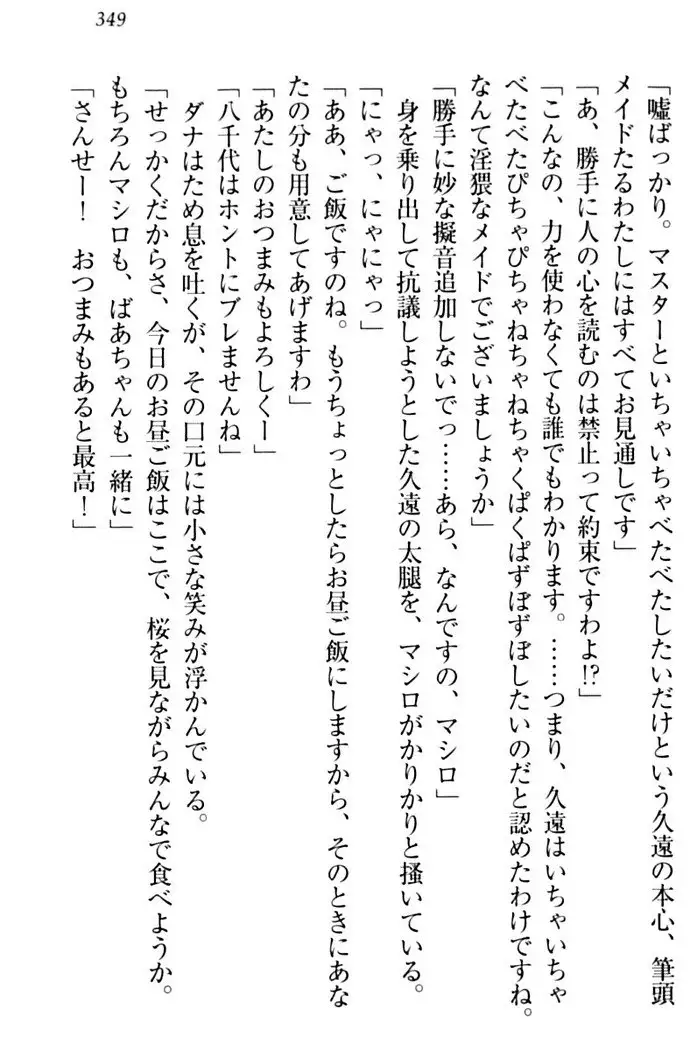 349
「嘘ばっかり。マスターといちゃいちゃべたべたしたいだけという久遠の本心、筆頭
メイドたるわたしにはすべてお見通しです」
「あ、勝手に人の心を読むのは禁止って約束ですわよ!?」
「こんなの、力を使わなくても誰でもわかります。……つまり、久遠はいちゃいちゃ
べたべたぴちゃぴちゃねちゃねちゃくぱくぱずぼずぼしたいのだと認めたわけですね。
なんて淫猥なメイドでございましょうか」
「勝手に妙な擬音追加しないでっ……あら、なんですの、マシロ」
身を乗り出して抗議しようとした久遠の太腿を、マシロがかりかりと掻いている。
「にゃっ、にゃにゃっ」
「ああ、ご飯ですのね。もうちょっとしたらお昼ご飯にしますから、そのときにあな
たの分も用意してあげますわ」
「あたしのおつまみもよろしくー」
「八千代はホントにブレませんね」
ダナはため息を吐くが、その口元には小さな笑みが浮かんでいる。
「せっかくだからさ、今日のお昼ご飯はここで、桜を見ながらみんなで食べようか。
もちろんマシロも、ばあちゃんも一緒に」
「さんせー！　おつまみもあると最高！」